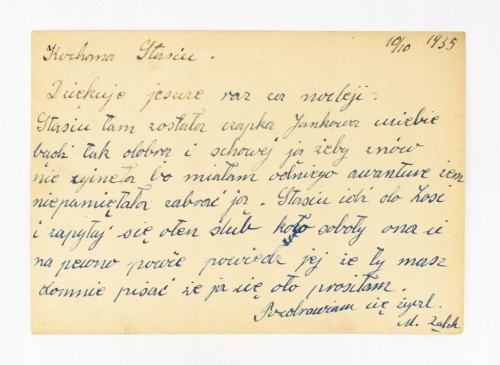 10/10 1955
Kochana Stasiu.
Dziękuje jeszcze raz za nocleji.
Stasiu tam została czapka Jankowa uciebie
bądź tak dobra i schowej ja żeby znów
nie zgineła bo miałam odniego awanture żem
niepamiętała zabrać ja. Stasiu idź do Zosi
i zapytaj się oten ślub koło soboty ona ci
na pewno powie powiedz jej że ty masz
domnie pisać że ja cię oto prosiłam.
Pozdrawiam cię życzl.
M.